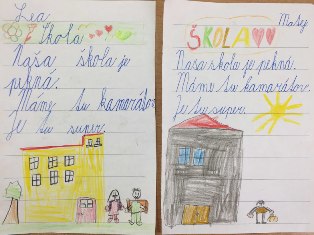 Lea
Škola
Naša škola je
pekná.
Mámy tu kamarátov.
Je tu super.
Matej
ŠKOLA
Naša škola je pekná.
Máme tu kamarátov.
Je tu super.